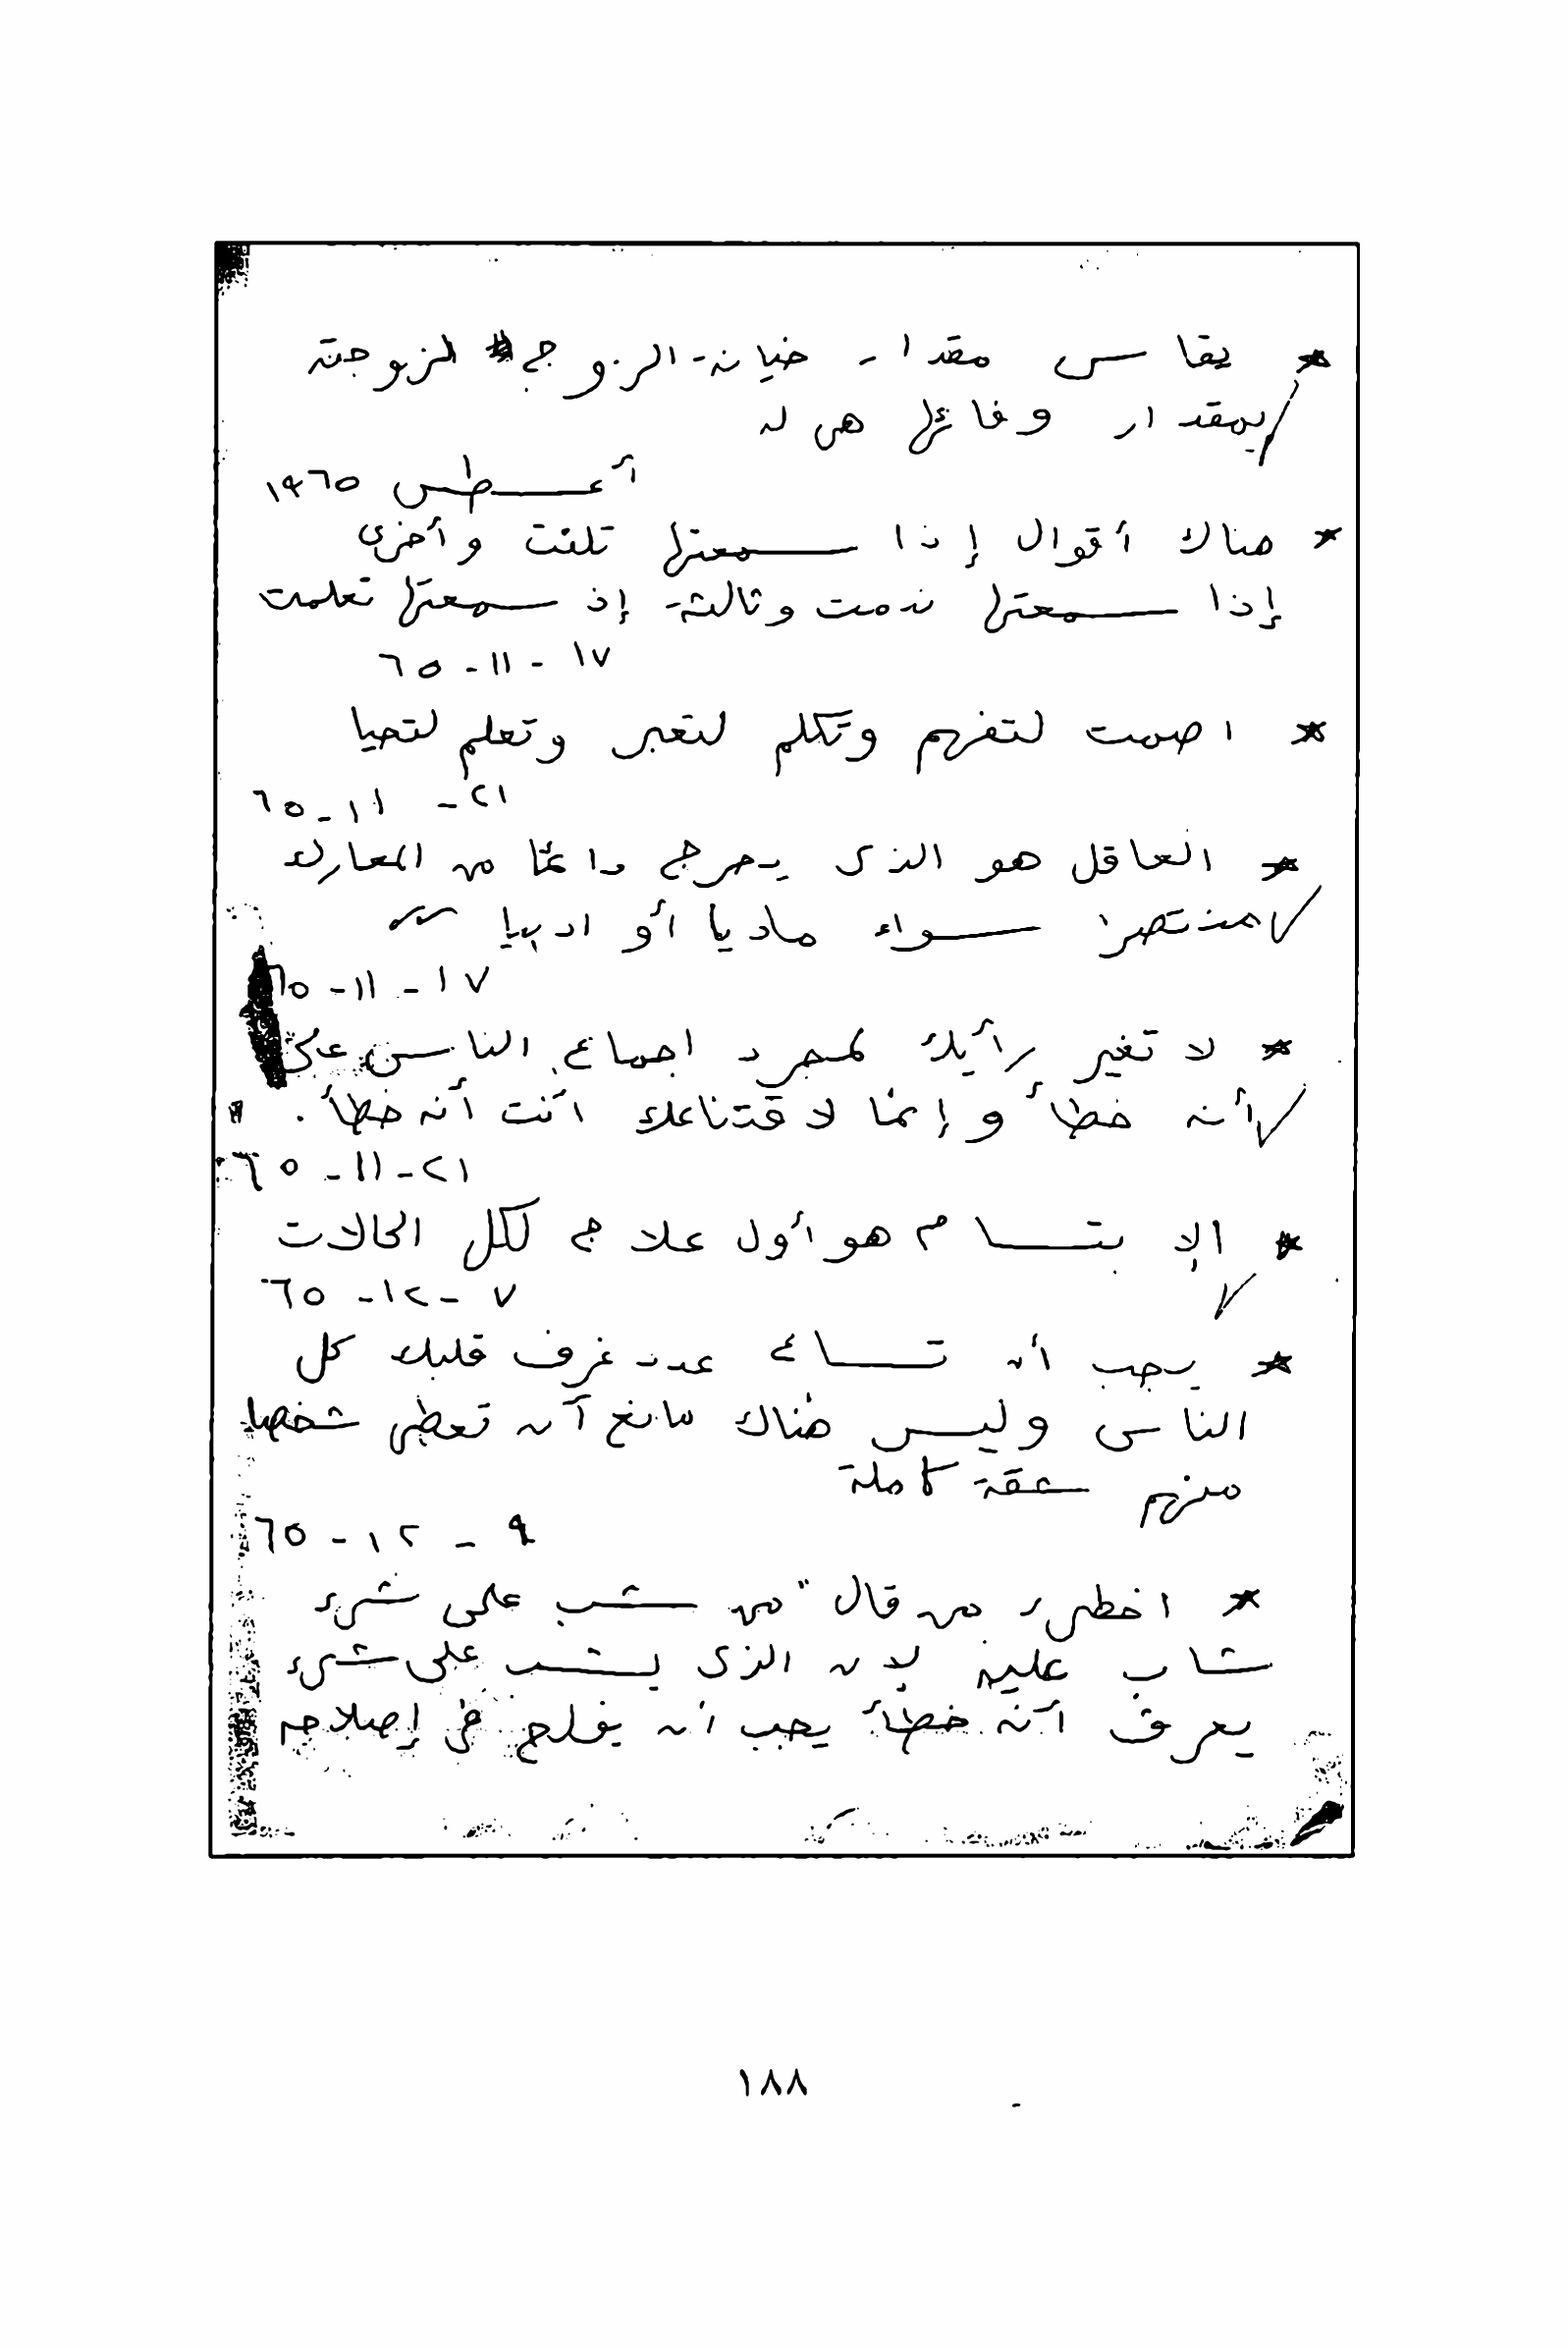 * يقاس مقدار خيانة الزوج لزوجته
بمقدار وفائها هى له
أغسطس ١٩٦٥
* هناك أقوال إذا سمعتها تلفت وأخرى
إذا سمعتها ندمت وثالثة إذ سمعتها تعلمت
١٧ - ١١ - ٦٥
* اصمت لتفهم وتكلم لتعبر وتعلم لتحيا
٢١ - ١١ - ٦٥
* العاقل هو الذى يخرج دائما من المعارك
منتصرا سواء ماديا أو ادبيا
١٧ - ١١ - ٦٥
* لا تغير رأيك لمجرد اجماع الناس على
أنه خطأ وإنما لاقتناعك أنت أنه خطأ .
٢١ - ١١ - ٦٥
* الإبتسام هو أول علاج لكل الحالات
٧ - ١٢ - ٦٥
* يجب أن تساع عدد غرف قلبك كل
الناس وليس هناك مانع أن تعطى شخصا
منهم شقة كاملة
٩ - ١٢ - ٦٥
* اخطىء من قال " من شب على شىء
شاب عليه لإن الذى يشب على شىء
يعرف أنه خطأ يجب أن يفلح فى إصلاحه
١٨٨